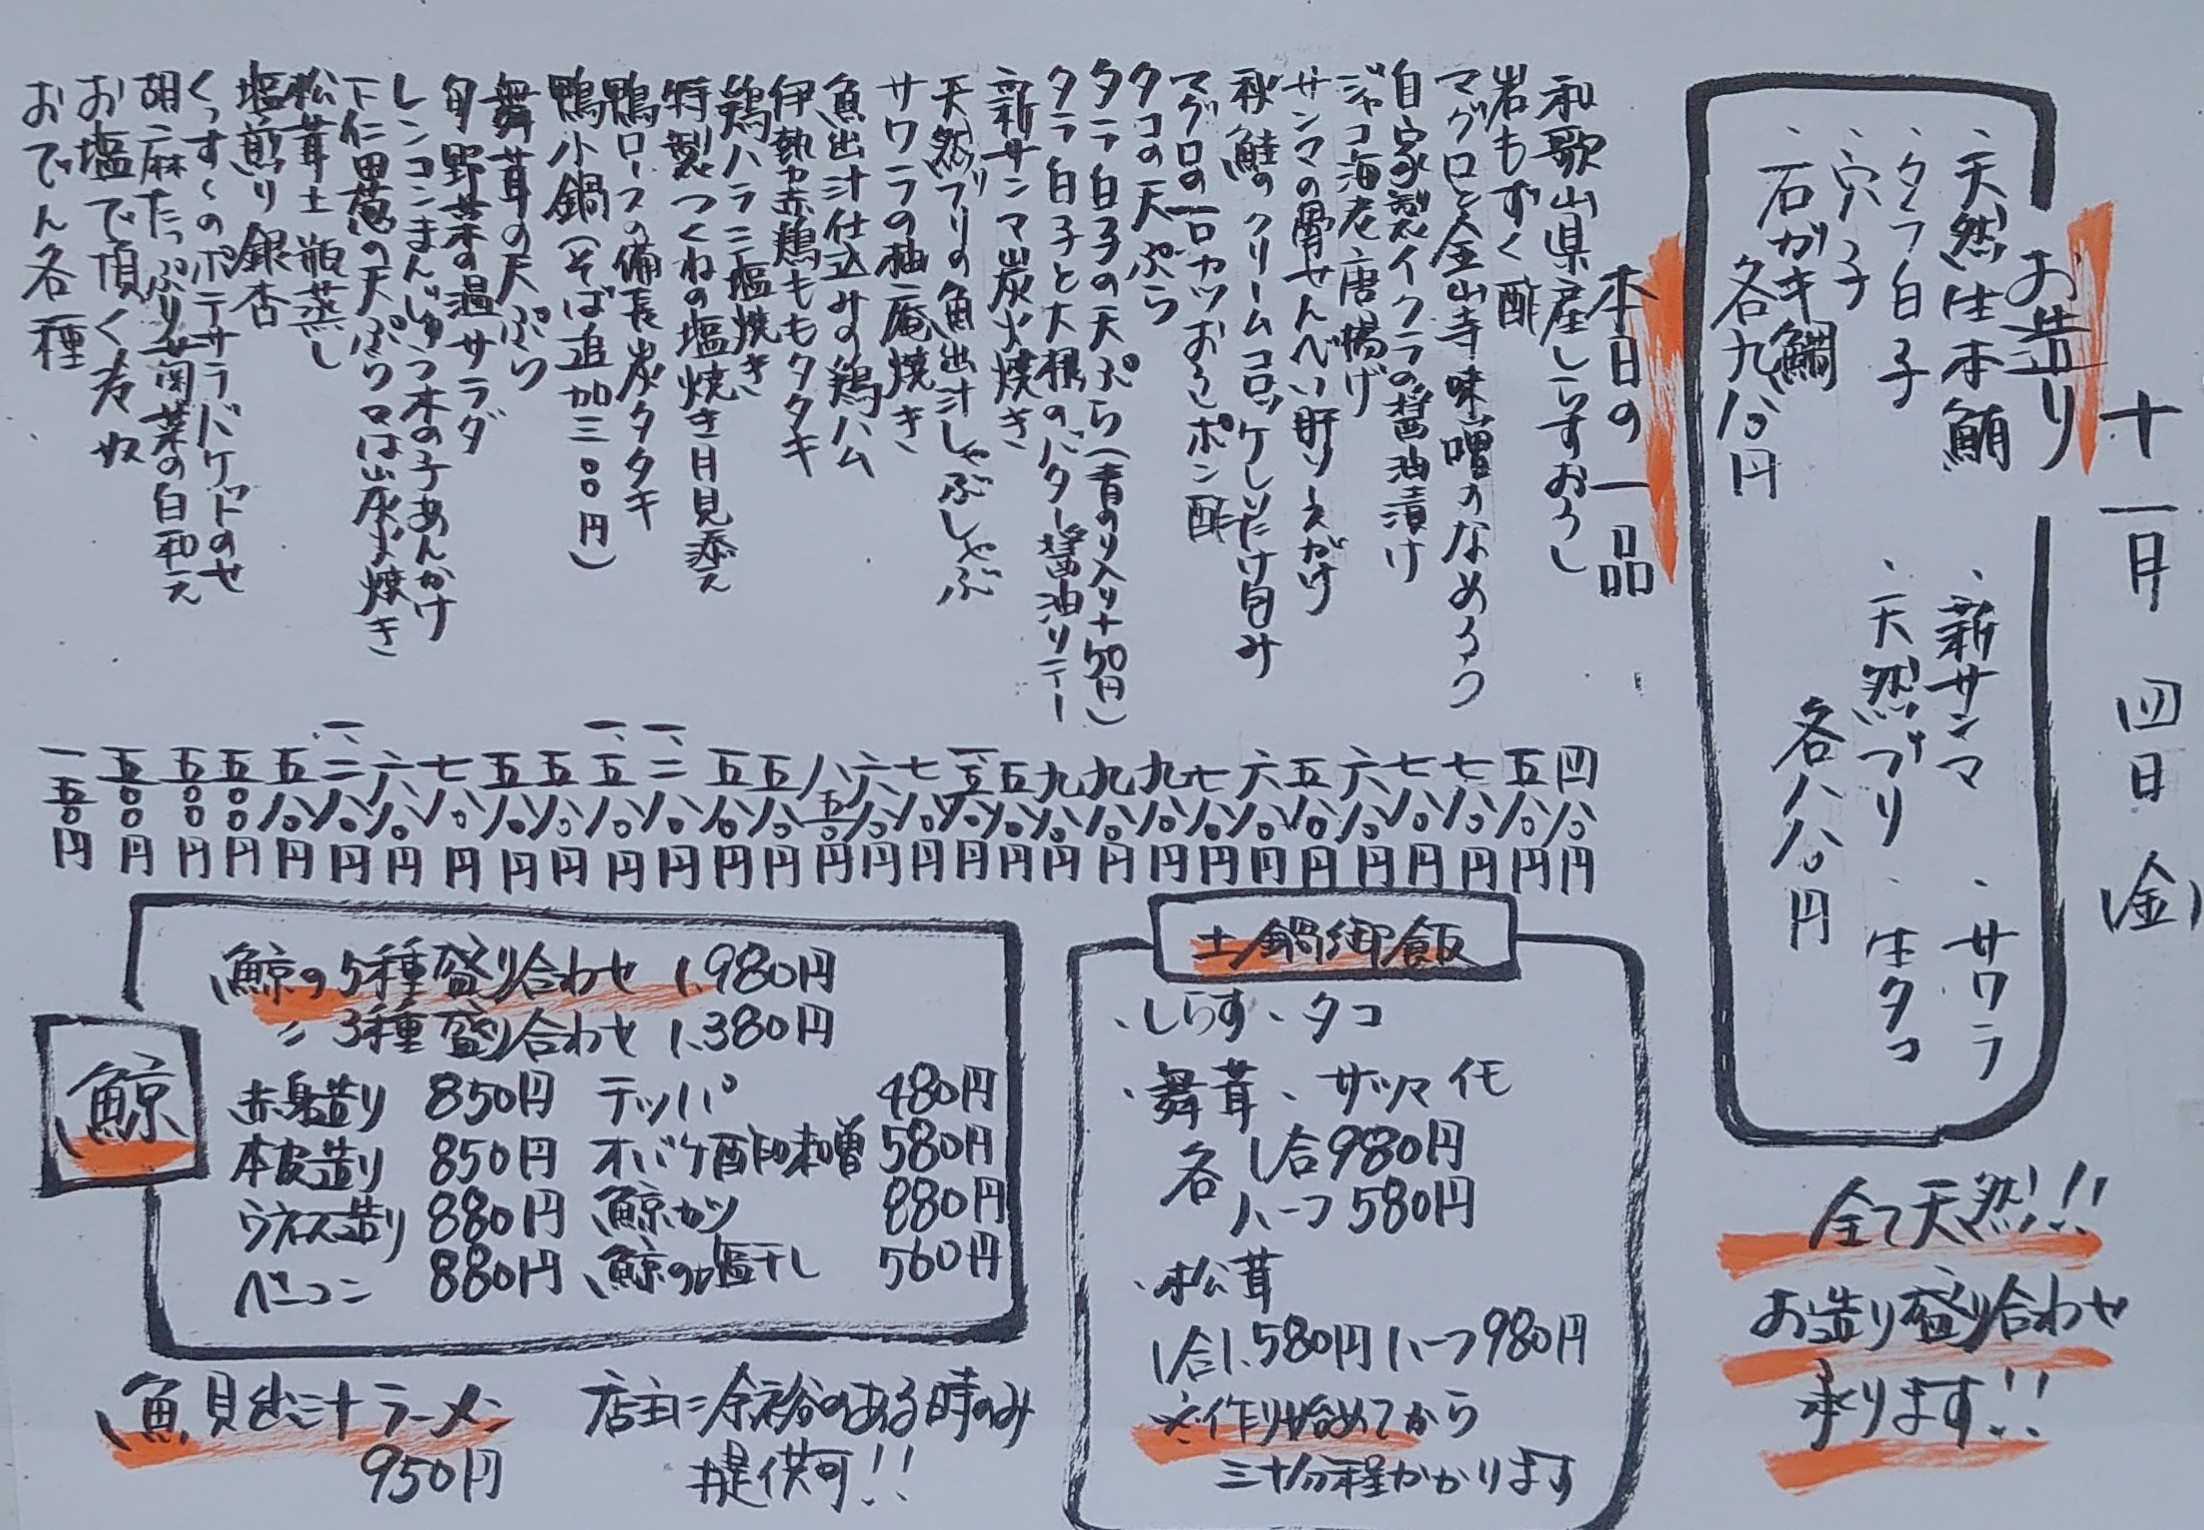 十一月 四日 (金)
お造り
・天然生本鮪
・タラ白子
・穴子
・石ガキ鯛
各九八〇円
・新サンマ ・サワラ
・天然ブリ ・生タコ
各八八〇円
全て天然!!
お造り盛り合わせ
承ります!!
本日の一品
和歌山県産しらすおろし 四八〇円
岩もずく酢 五八〇円
マグロと金山寺味噌のなめろう 七八〇円
自家製イクラの醤油漬け 七八〇円
ジャコ海老唐揚げ 六八〇円
サンマの骨せんべい肝ソースがけ 五八〇円
秋鮭のクリームコロッケしいたけ包み 六八〇円
マグロの一口カツおろしポン酢 七八〇円
タコの天ぷら 九八〇円
タラ白子の天ぷら(青のり入り+50円) 九八〇円
タラ白子と大根のバター醤油ソテー 九八〇円
新サンマ炭火焼き 五八〇円
天然ブリの魚出汁しゃぶしゃぶ
サワラの柚庵焼き 七八〇円
魚出汁仕込みの鶏ハム 六八〇円
伊勢赤鶏ももタタキ 八五〇円
鶏ハラミ塩焼き 五八〇円
特製つくねの塩焼き月見添え 五八〇円
鴨ロースの備長炭タタキ 一、二八〇円
鴨小鍋(そば追加三〇〇円) 一、五八〇円
舞茸の天ぷら 五八〇円
旬野菜の温サラダ 五八〇円
レンコンまんじゅう木の子あんかけ 七八〇円
下仁田葱の天ぷら又は炭火焼き 六八〇円
松茸土瓶蒸し 一、二八〇円
塩煎り銀杏 五八〇円
くっすくのポテサラバケットのせ 五〇〇円
胡麻たっぷり春菊菜の白和え 五〇〇円
お塩で頂く寄せ奴 五〇〇円
おでん各種 一五〇円
土鍋御飯
・しらす ・タコ
・舞茸 ・サツマイモ
各 1合980円
ハーフ580円
・松茸
1合1.580円 ハーフ980円
※作り始めてから
三十分程かかります
鯨
鯨の5種盛り合わせ 1.980円
〃 3種盛り合わせ 1.380円
赤身造り 850円 テッパ 480円
本皮造り 850円 オバケ酢味噌 580円
ウネス造り 880円 鯨カツ 880円
ベーコン 880円 鯨の塩干し 560円
魚貝出汁ラーメン
950円
店主に余裕のある時のみ
提供可!!